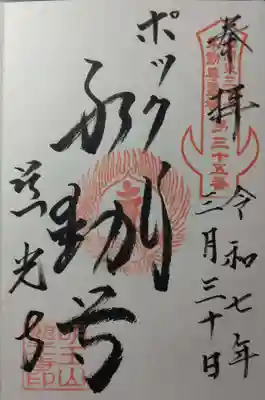 奉拝
ポックリ
不動尊
光寺
令和七年
三月三十日
第三十五番